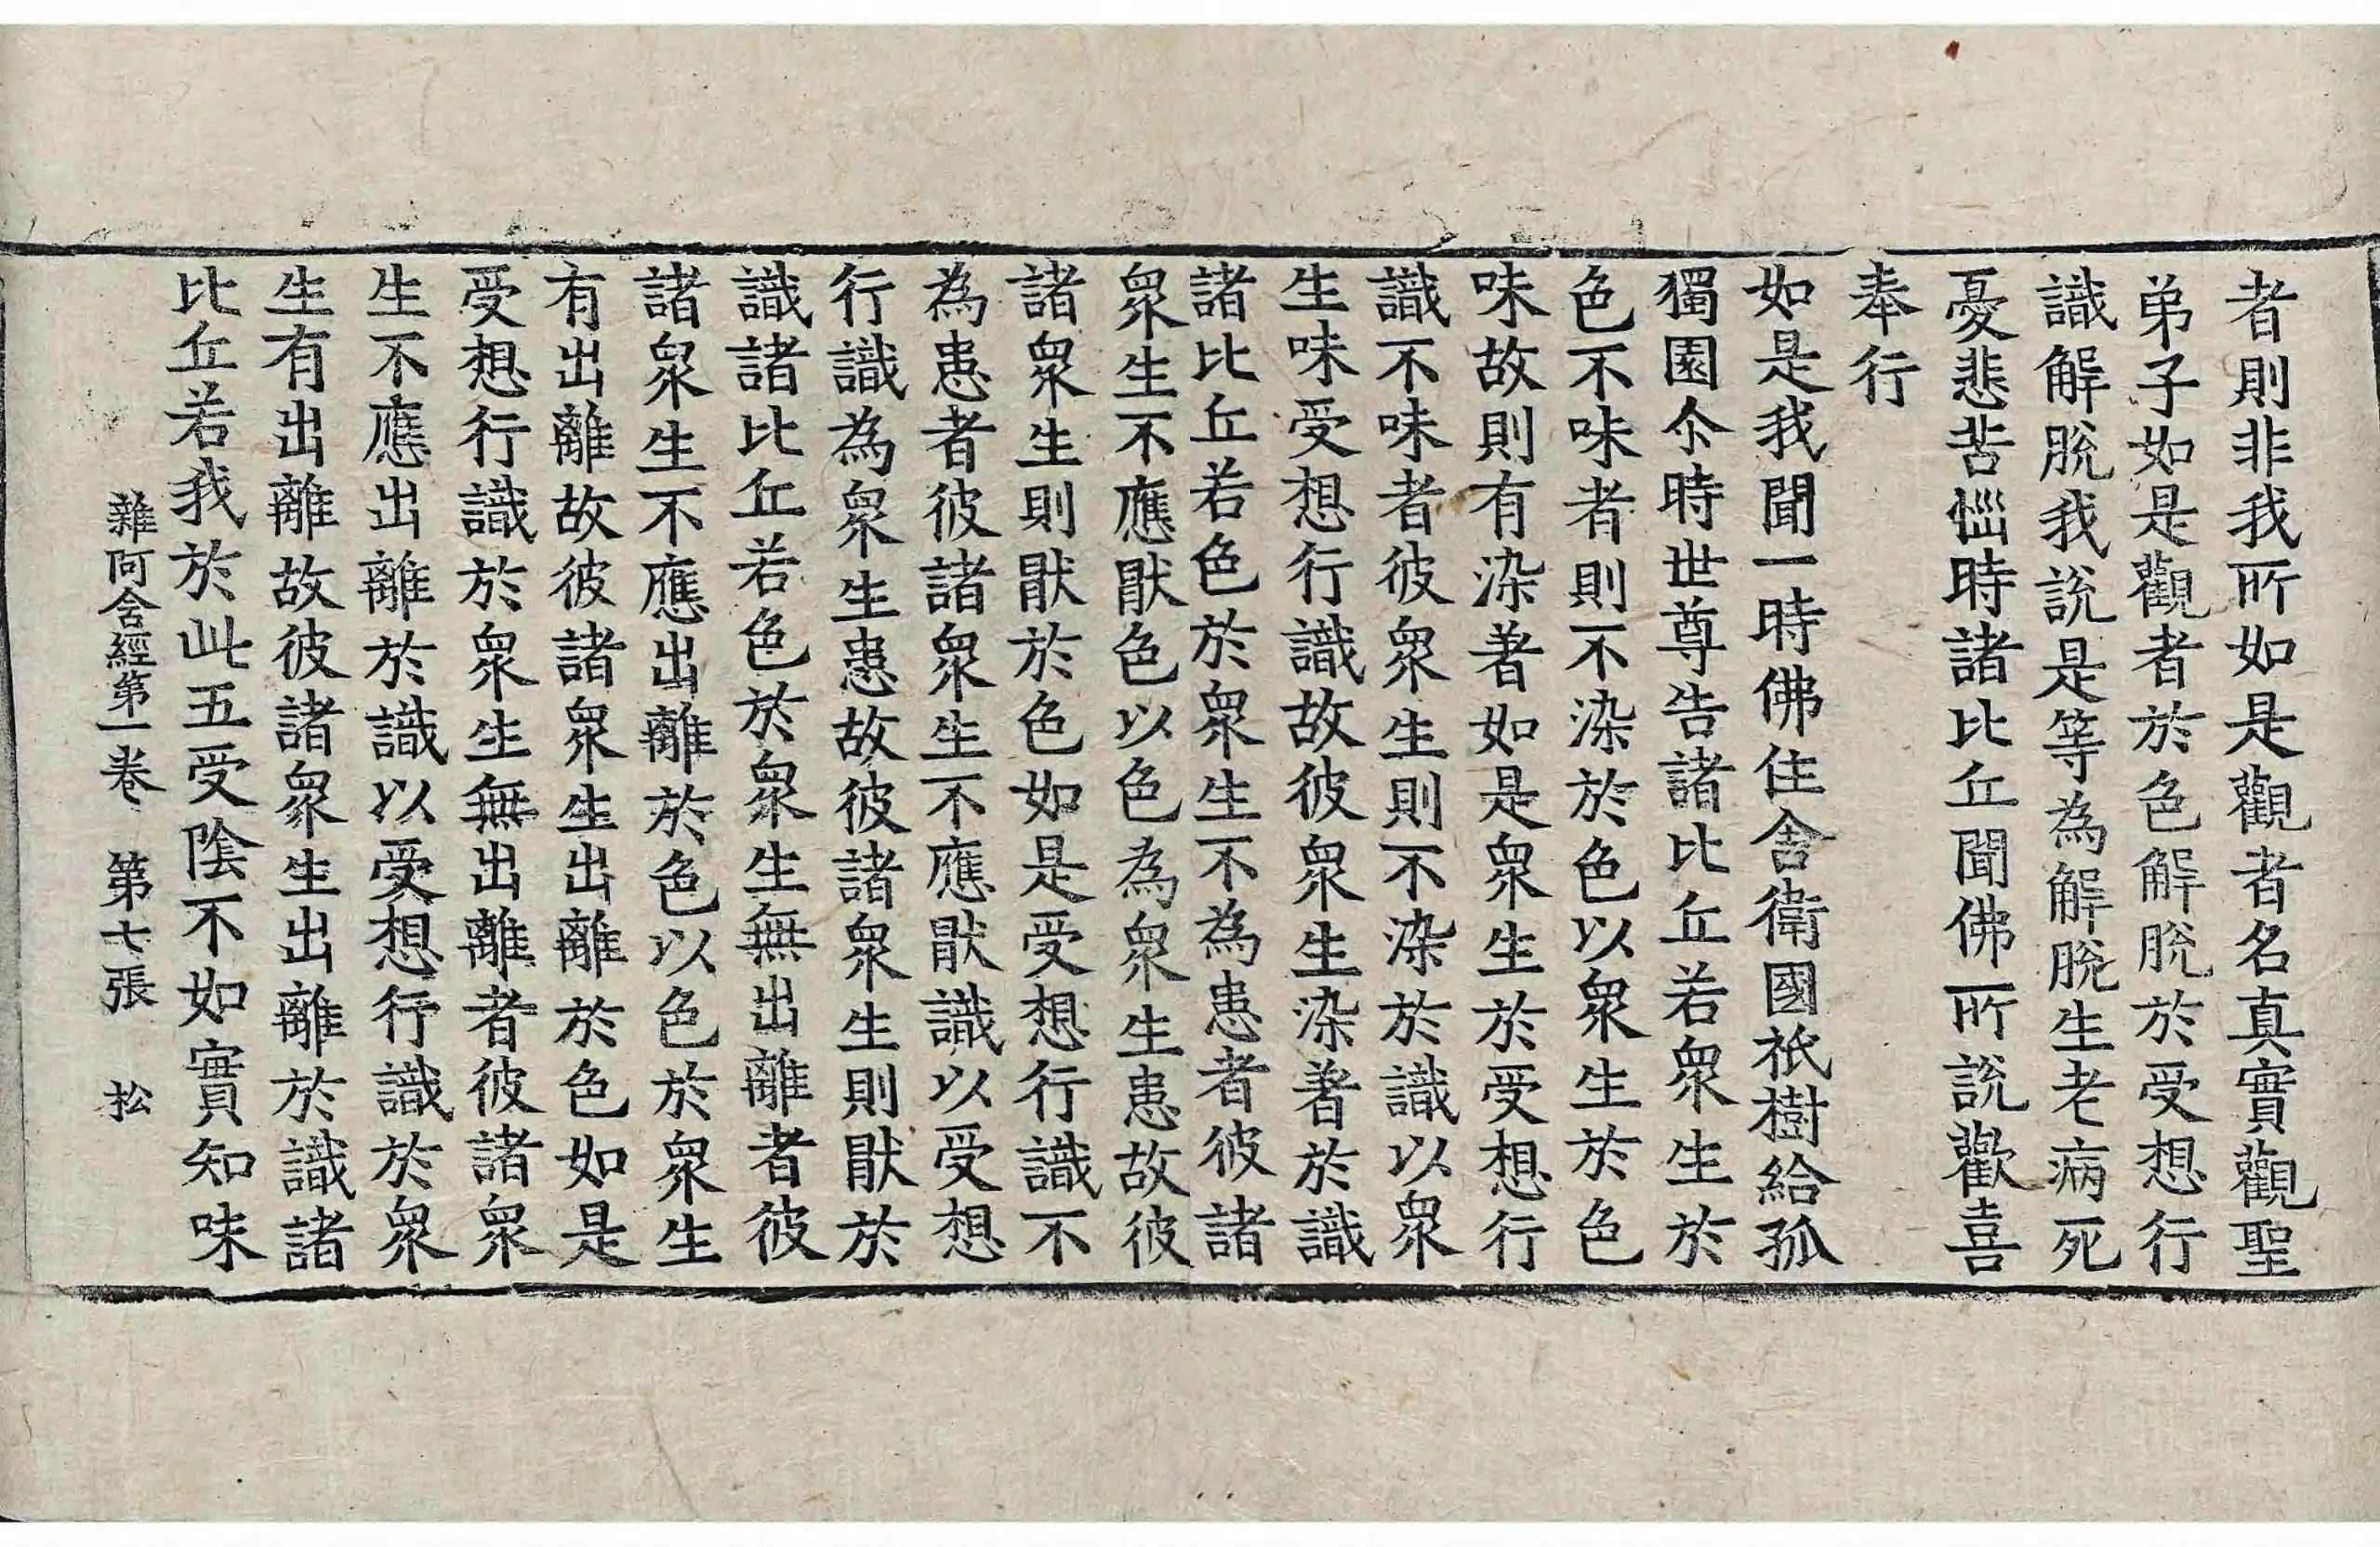 者則非我所如是觀者名真實觀聖
弟子如是觀者於色解脫於受想行
識解脫我說是等為解脫生老病死
憂悲苦惱時諸比丘聞佛所說歡喜
奉行
如是我聞一時佛住舍衛國祇樹給孤
獨園尒時世尊告諸比丘若衆生於
色不味者則不染於色以衆生於色
味故則有染著如是衆生於受想行
識不味者彼衆生則不染於識以衆
生味受想行識故彼衆生染著於識
諸比丘若色於衆生不為患者彼諸
衆生不應猒色以色為衆生患故彼
諸衆生則猒於色如是受想行識不
為患者彼諸衆生不應猒識以受想
行識為衆生患故彼諸衆生則猒於
識諸比丘若色於衆生無出離者彼
諸衆生不應出離於色以色於衆生
有出離故彼諸衆生出離於色如是
受想行識於衆生無出離者彼諸衆
生不應出離於識以受想行識於衆
生有出離故彼諸衆生出離於識諸
比丘若我於此五受陰不如實知味
雜阿含經第一卷 第七張 松